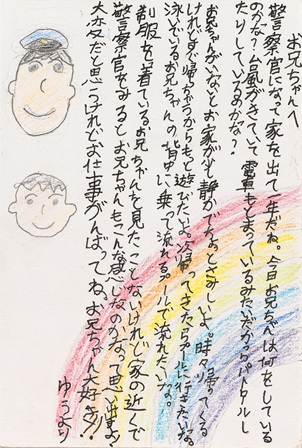 お兄ちゃんへ
警察官になって家を出て一年だね。今日お兄ちゃんは何をしている
のかな？台風がきていて電車もとまっているみたいだからパトロールし
たりしているのかな？
お兄ちゃんがいないとお家が少し静かでちょっとさみしいよ。時々帰ってくる
けれどすぐ帰っちゃうからもっと遊びたいよ。次帰ってきたらプールに行きたいな。
泳いでいるお兄ちゃんの背中に乗って流れるプールで流れたいな。
制服を着ているお兄ちゃんを見たことないけれど家の近くで
警察官をみるとお兄ちゃんもこんな感じなのかなって思い出すよ！
大変だと思うけれどお仕事がんばってね。お兄ちゃん大好き！
ゆうより